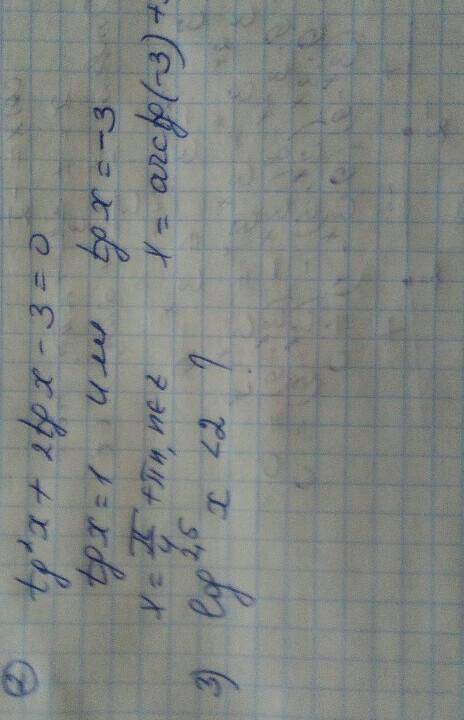 ② tg²x + 2tgx - 3 = 0
tgx = 1 или tgx = -3
x = π/4 + πn, n∈z x = arctg(-3) +
3) log₂,₅ x < 2 ?